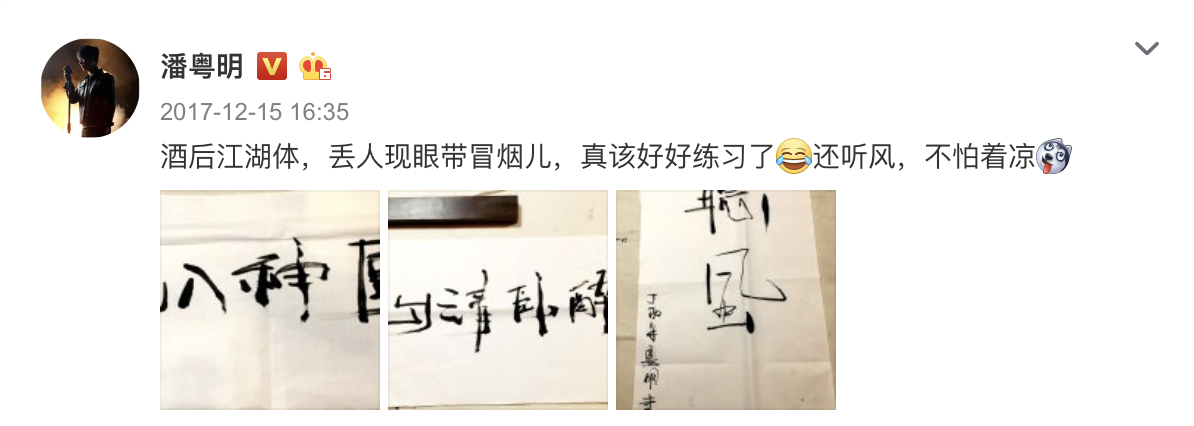 潘粤明
2017-12-15 16:35
酒后江湖体，丢人现眼带冒烟儿，真该好好练习了😂还听风，不怕着凉
八种
清卧醉
聽
風